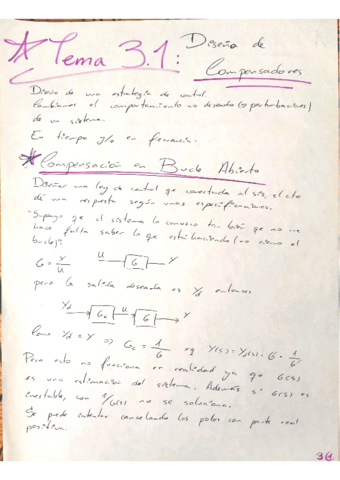 * Tema 3.1: Diseño de
Compensadores
Diseño de una estrategia de control.
Cambiamos el comportamiento no deseado (o perturbaciones)
de un sistema.
En tiempo y/o en frecuencia.
* Compensación en Bucle Abierto
Diseñar una ley de control que conectada al sis, el cto
dé una respuesta según unas especificaciones.
"Supongo que el sistema lo conozco tan bien que no me
hace falta saber lo que está haciendo (no cierro el
bucle)".
G = Y/U   U → [G] → Y
pero la salida deseada es Yd entonces
Yd → [Gc] → U → [G] → Y
Para Yd = Y ⇒ Gc = 1/G   Y(s) = Yd(s) · G · 1/G
Pero esto no funciona en realidad ya que G(s)
es una estimación del sistema. Además si G(s) es
inestable, con 1/G(s) no se soluciona.
Se puede intentar cancelando los polos con parte real
positiva.